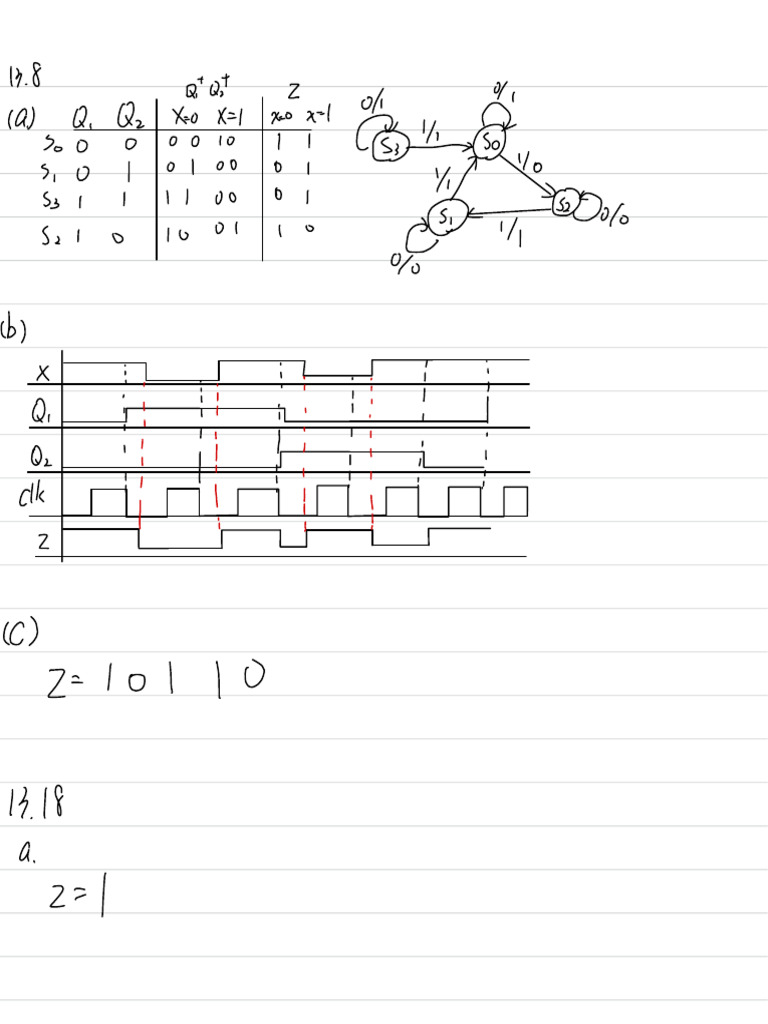 13.8
Q₁⁺ Q₂⁺ Z
(a) Q₁ Q₂ X=0 X=1 x=0 x=1
S₀ 0 0 0 0 1 0 1 1
S₁ 0 1 0 1 0 0 0 1
S₃ 1 1 1 1 0 0 0 1
S₂ 1 0 1 0 0 1 1 0
0/1 0/1
S₃ 1/1 S₀
1/1 1/0
S₁ 1/1 S₂ 0/0
0/0
(b)
X
Q₁
Q₂
Clk
Z
(C)
Z= 1 0 1 1 0
13.18
a.
Z=1